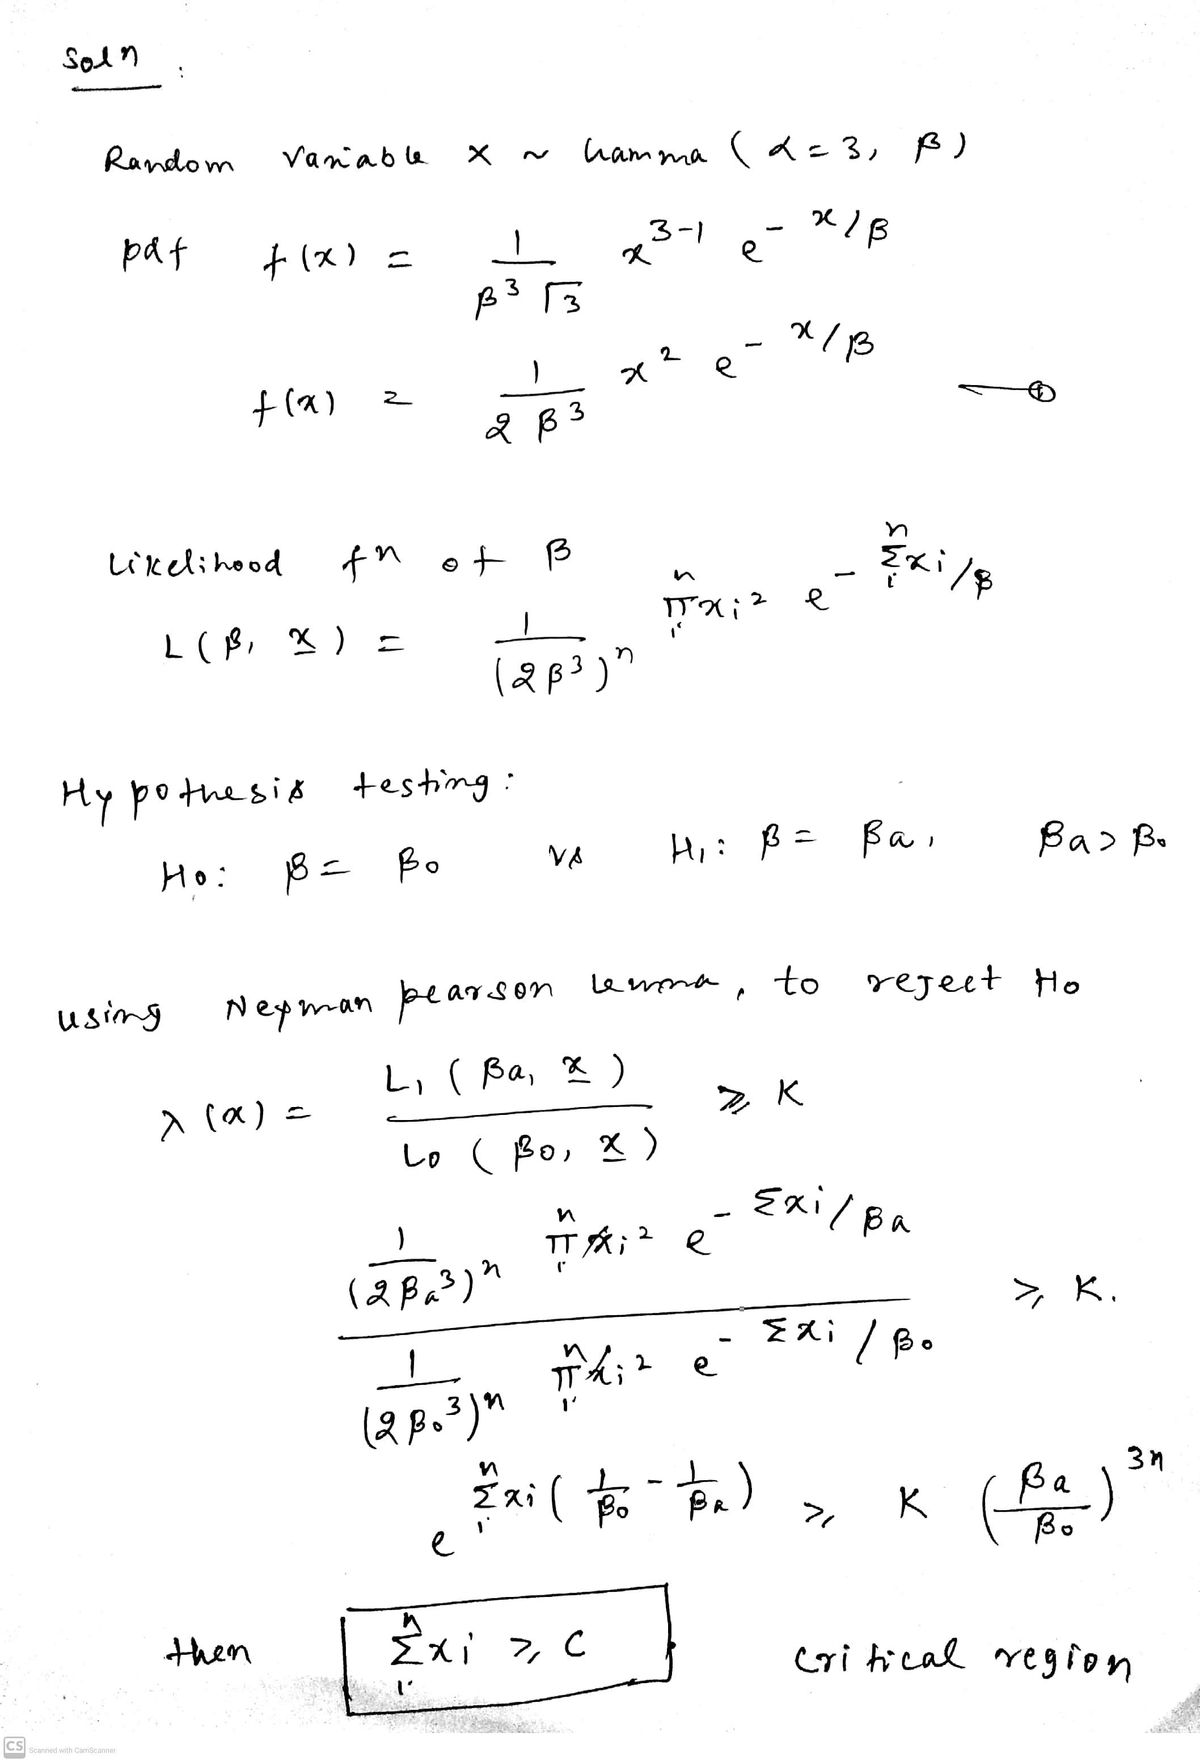 Soln :
Random variable X ~ Gamma ( α = 3, β )
pdf f(x) = 1/(β^3 Γ3) x^(3-1) e^(- x/β)
f(x) = 1/(2 β^3) x^2 e^(- x/β) — ①
Likelihood fn of β
L ( β, x ) = 1/(2β^3)^n ∏_1^n xi^2 e^(- Σ_1^n xi/β)
Hypothesis testing :
Ho : β = βo vs H1 : β = βa , βa > βo
using Neyman pearson lemma , to reject Ho
λ (x) = L1 ( βa, x ) / Lo ( βo, x ) ≥ K
[1/(2βa^3)^n ∏_1^n xi^2 e^(- Σxi/βa)] / [1/(2βo^3)^n ∏_1^n xi^2 e^(- Σxi/βo)] ≥ K.
e^(Σ_1^n xi ( 1/βo - 1/βa )) ≥ K ( βa/βo )^(3n)
then Σ_1^n xi ≥ C critical region
CS Scanned with CamScanner